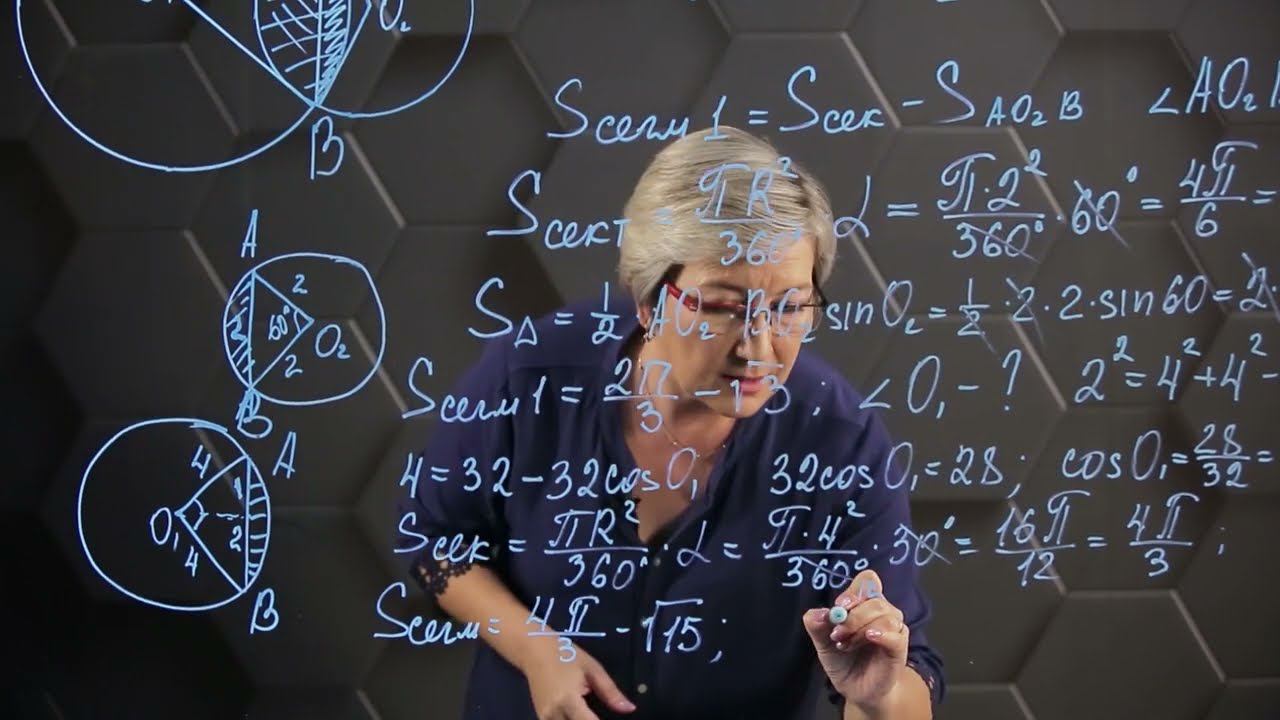 O₂
B
Sсегм 1 = Sсек - S AO₂B ∠AO₂
Sсект = πR²/360° α = π·2²/360° · 60° = 4π/6 =
A
2
2
60°
O₂
2
B
S△ = 1/2 AO₂ BO₂ sinO₂ = 1/2 · 2 · 2 · sin60 = 2
Sсегм 1 = 2π/3 - √3 ; ∠O₁ - ? 2² = 4² + 4² -
4 = 32 - 32cosO₁ 32cosO₁ = 28 ; cosO₁ = 28/32 =
A
4
O₁
2
4
B
Sсек = πR²/360° · α = π·4²/360° · 30° = 16π/12 = 4π/3 ;
Sсегм = 4π/3 - √15 ;